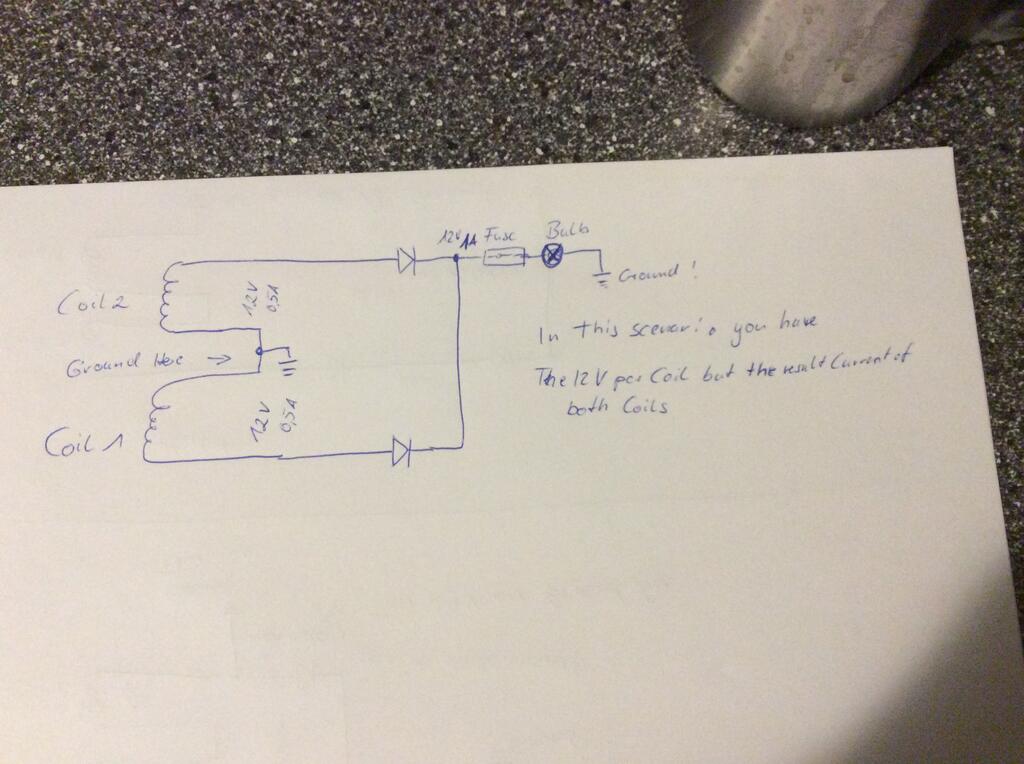 12V 1A Fuse Bulb
Coil 2
12V
0,5A
Ground!
Ground Here
In this scenario you have
The 12V per Coil but the result Current of
both Coils
12V
0,5A
Coil 1